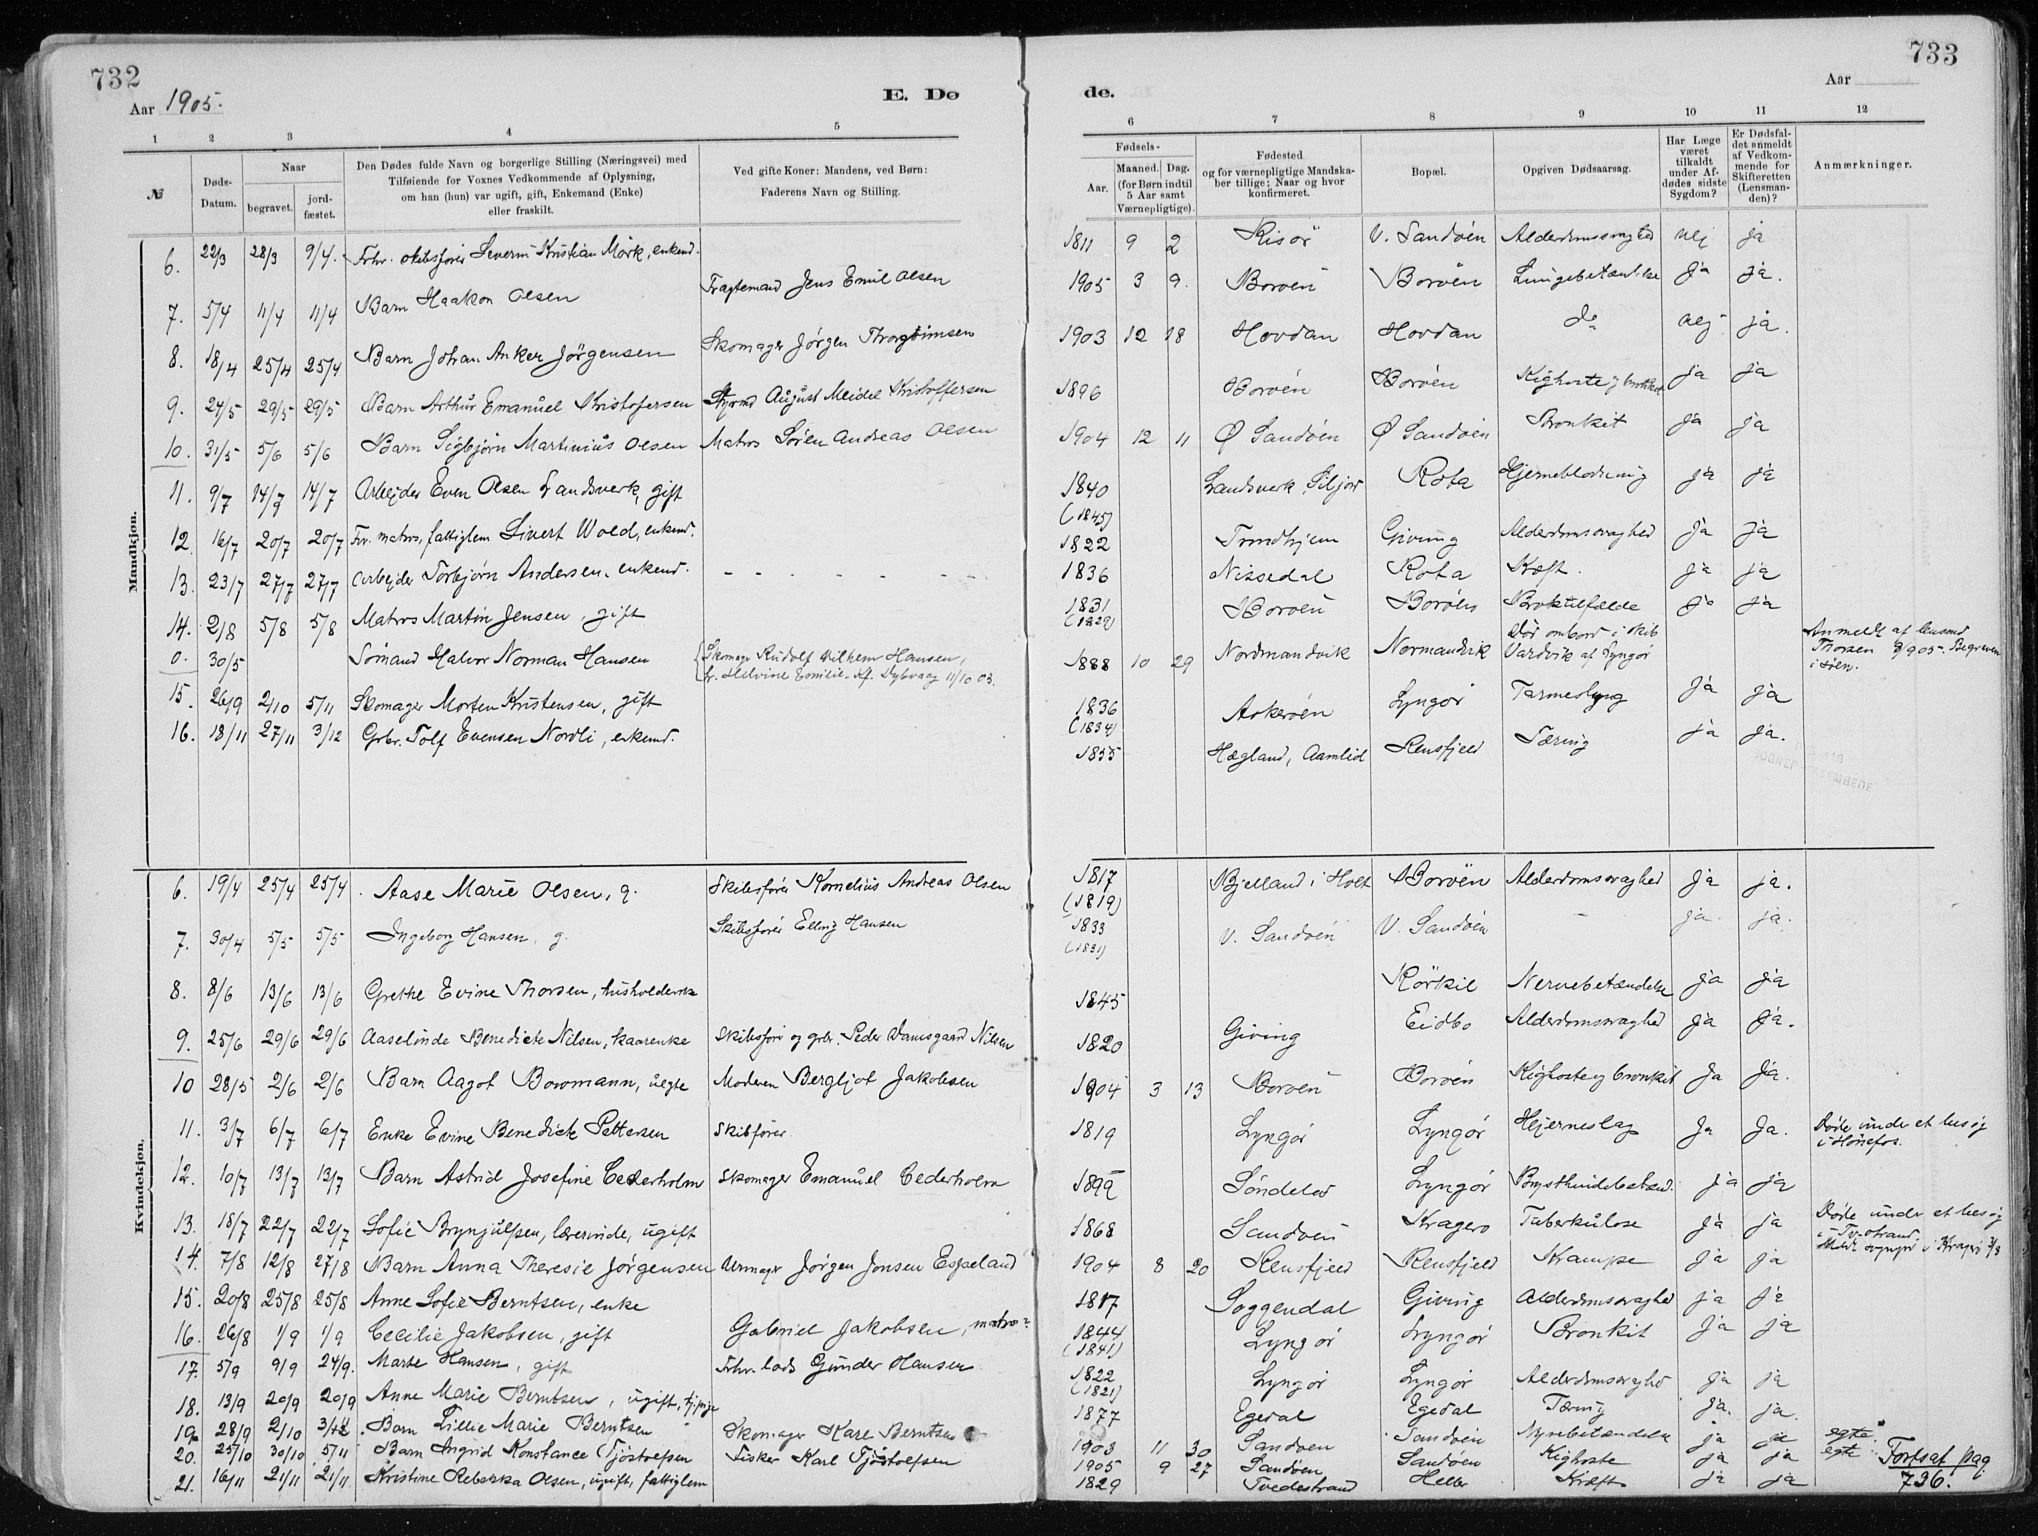 732
Aar 1905.
E. Dø
1 2 3 4 5
№
Døds-Datum.
Naar
begravet.
jordfæstet.
Den Dødes fulde Navn og borgerlige Stilling (Næringsvei) med
Tilføiende for Voxnes Vedkommende af Oplysning,
om han (hun) var ugift, gift, Enkemand (Enke)
eller fraskilt.
Ved gifte Koner: Mandens, ved Børn:
Faderens Navn og Stilling.
Mandkjøn.
6. 22/3 28/3 9/4. Fhv. skibsfører Severin Kristian Mörk, enkend.
7. 5/4 11/4 11/4 Barn Haakon Olsen Fragtemand Jens Emil Olsen
8. 18/4 25/4 25/4 Barn Johan Anker Jörgensen Skomager Jørgen
9. 24/5 29/5 29/5 Barn Arthur Emanuel Kristofersen Styrmd August Meidel Kristoffersen
10. 31/5 5/6 5/6 Barn Sigbjörn Martinius Olsen Matros Sören Andreas Olsen
11. 9/7 14/7 14/7 Arbejder Even Olsen Landsverk, gift
12. 16/7 20/7 20/7 Fv. matros, fattiglem Sivert Wold, enkend.
13. 23/7 27/7 27/7 Arbejder Torbjörn Andersen, enkend.
14. 2/8 5/8 5/8 Matros Martin Jensen, gift
0. 30/5 Sömand Halvor Norman Hansen Skomager Rudolf Vilhelm Hansen,
Helvine Emilie. Kf. Dybvaag 11/10 03.
15. 26/9 2/10 5/11 Skomager Morten Kristensen, gift
16. 18/11 27/11 3/12 Grbr. Tolf Evensen Nordli, enkend.
Kvindekjøn.
6. 19/4 25/4 25/4 Aase Marie Olsen, g. Skibsfører Kornelius Andreas Olsen
7. 30/4 5/5 5/5 Ingeborg Hansen, g. Skibsfører Elling Hansen
8. 8/6 13/6 13/6 Grethe Evine Thorsen, husholderske
9. 25/6 29/6 29/6 Aaselinde Benedicte Nilsen, kaarenke Skibsfører og grbr. Peder Damsgaard Nilsen
10 28/5 2/6 2/6 Barn Aagot Bowmann, uegte Moderen Bergljot Jakobsen
11. 3/7 6/7 6/7 Enke Evine Benedicte Pettersen Skibsfører
12. 10/7 13/7 13/7 Barn Astrid Josefine Cederholm Skomager Emanuel Cederholm
13. 18/7 22/7 22/7 Sofie Brynjulfsen, lærerinde, ugift
14. 7/8 12/8 27/8 Barn Anna Theresie Jørgensen Urmager Jørgen Jonsen Espeland
15. 20/8 25/8 25/8 Anne Sofie Berntsen, enke
16. 26/8 1/9 1/9 Cecilie Jakobsen, gift Gabriel Jakobsen, matros
17. 5/9 9/9 24/9. Marte Hansen, gift Fhv. lods Gunder Hansen
18. 13/9 20/9 20/9 Anne Marie Berntsen, ugift,
19. 28/9 2/10 Barn Lillie Marie Berntsen Skomager Karl Berntsen
20. 25/10 30/10 5/11 Barn Ingrid Konstance Tjöstolfsen Fisker Karl Tjöstolfsen
21. 16/11 21/11 21/11 Kristine Rebekka Olsen, ugift, fattiglem
733
Aar
de.
6 7 8 9 10 11 12
Fødsels-
Aar.
Maaned. Dag.
(for Børn indtil
5 Aar samt
Værnepligtige).
Fødested
og for værnepligtige Mandskaber tillige: Naar og hvor
konfirmeret.
Bopæl.
Opgiven Dødsaarsag.
Har Læge
været
tilkaldt
under Afdødes sidste
Sygdom?
Er Dødsfaldet anmeldt
af Vedkommende for
Skifteretten
(Lensmanden)?
Anmærkninger.
1811 9 2 Risör V. Sandöen Alderdomssvaghed nej ja
1905 3 9. Boröen Boröen Lungebetændelse ja ja.
1903 12 18 Hovdan Hovdan do nej ja.
1896 Boröen Boröen Kighoste og bronkit ja ja
1904 12 11 Ø Sandöen Ø Sandöen Bronkit ja ja
1840
(1845) Landsverk, Siljord Rota Hjerneblödning ja ja
1822 Trondhjem Giving Alderdomssvaghed ja ja
1836 Nissedal Rota Kræft. ja ja
1831
(1829) Boröen Boröen Broktilfælde ja ja
1888 10 29 Nordmandvik Normandvik Död ombord i skib
Vardvik af Lyngör Anmeldt af lensmd
Thorsen 905. Begraven
i söen.
1836
(1834) Askeröen Lyngör Tarmeslyng ja ja
1855 Hægland, Aamlid Rensfjeld Tæring ja ja.
1817
(1819) Bjelland i Holt Boröen Alderdomssvaghed ja ja.
1833
(1831) V. Sandöen V. Sandöen - ja. ja.
1845 Rörkil Nervebetændelse ja ja
1820 Giving Eidbo Alderdomssvaghed ja ja.
1904 3 13 Boröen Boröen Kighoste og bronkit Ja Ja.
1819 Lyngör Lyngör Hjerneslag Ja Ja. Döde under et besög
i Hönefos.
1899 Söndeled Lyngör ja ja
1868 Sandöen Kragerø Tuberkulose ja ja Döde under et besög
i Tv.strand.
1904 8 20 Rensfjeld Rensfjeld Krampe ja ja
1817 Soggendal Giving Alderdomssvaghed ja ja
1844
(1841) Lyngör Lyngör Bronkit ja ja
1822
(1821) Lyngör Lyngör Alderdomssvaghed ja ja
1877 Egedal Egedal Tæring ja. ja.
1903 11 30 Sandöen Sandöen Nyrebetændelse ja ja egte.
1905 9 27 Sandöen Sandöen Kighoste ja ja egte
1829 Tvedestrand Helle Kræft ja ja
Fortsat pag
736.